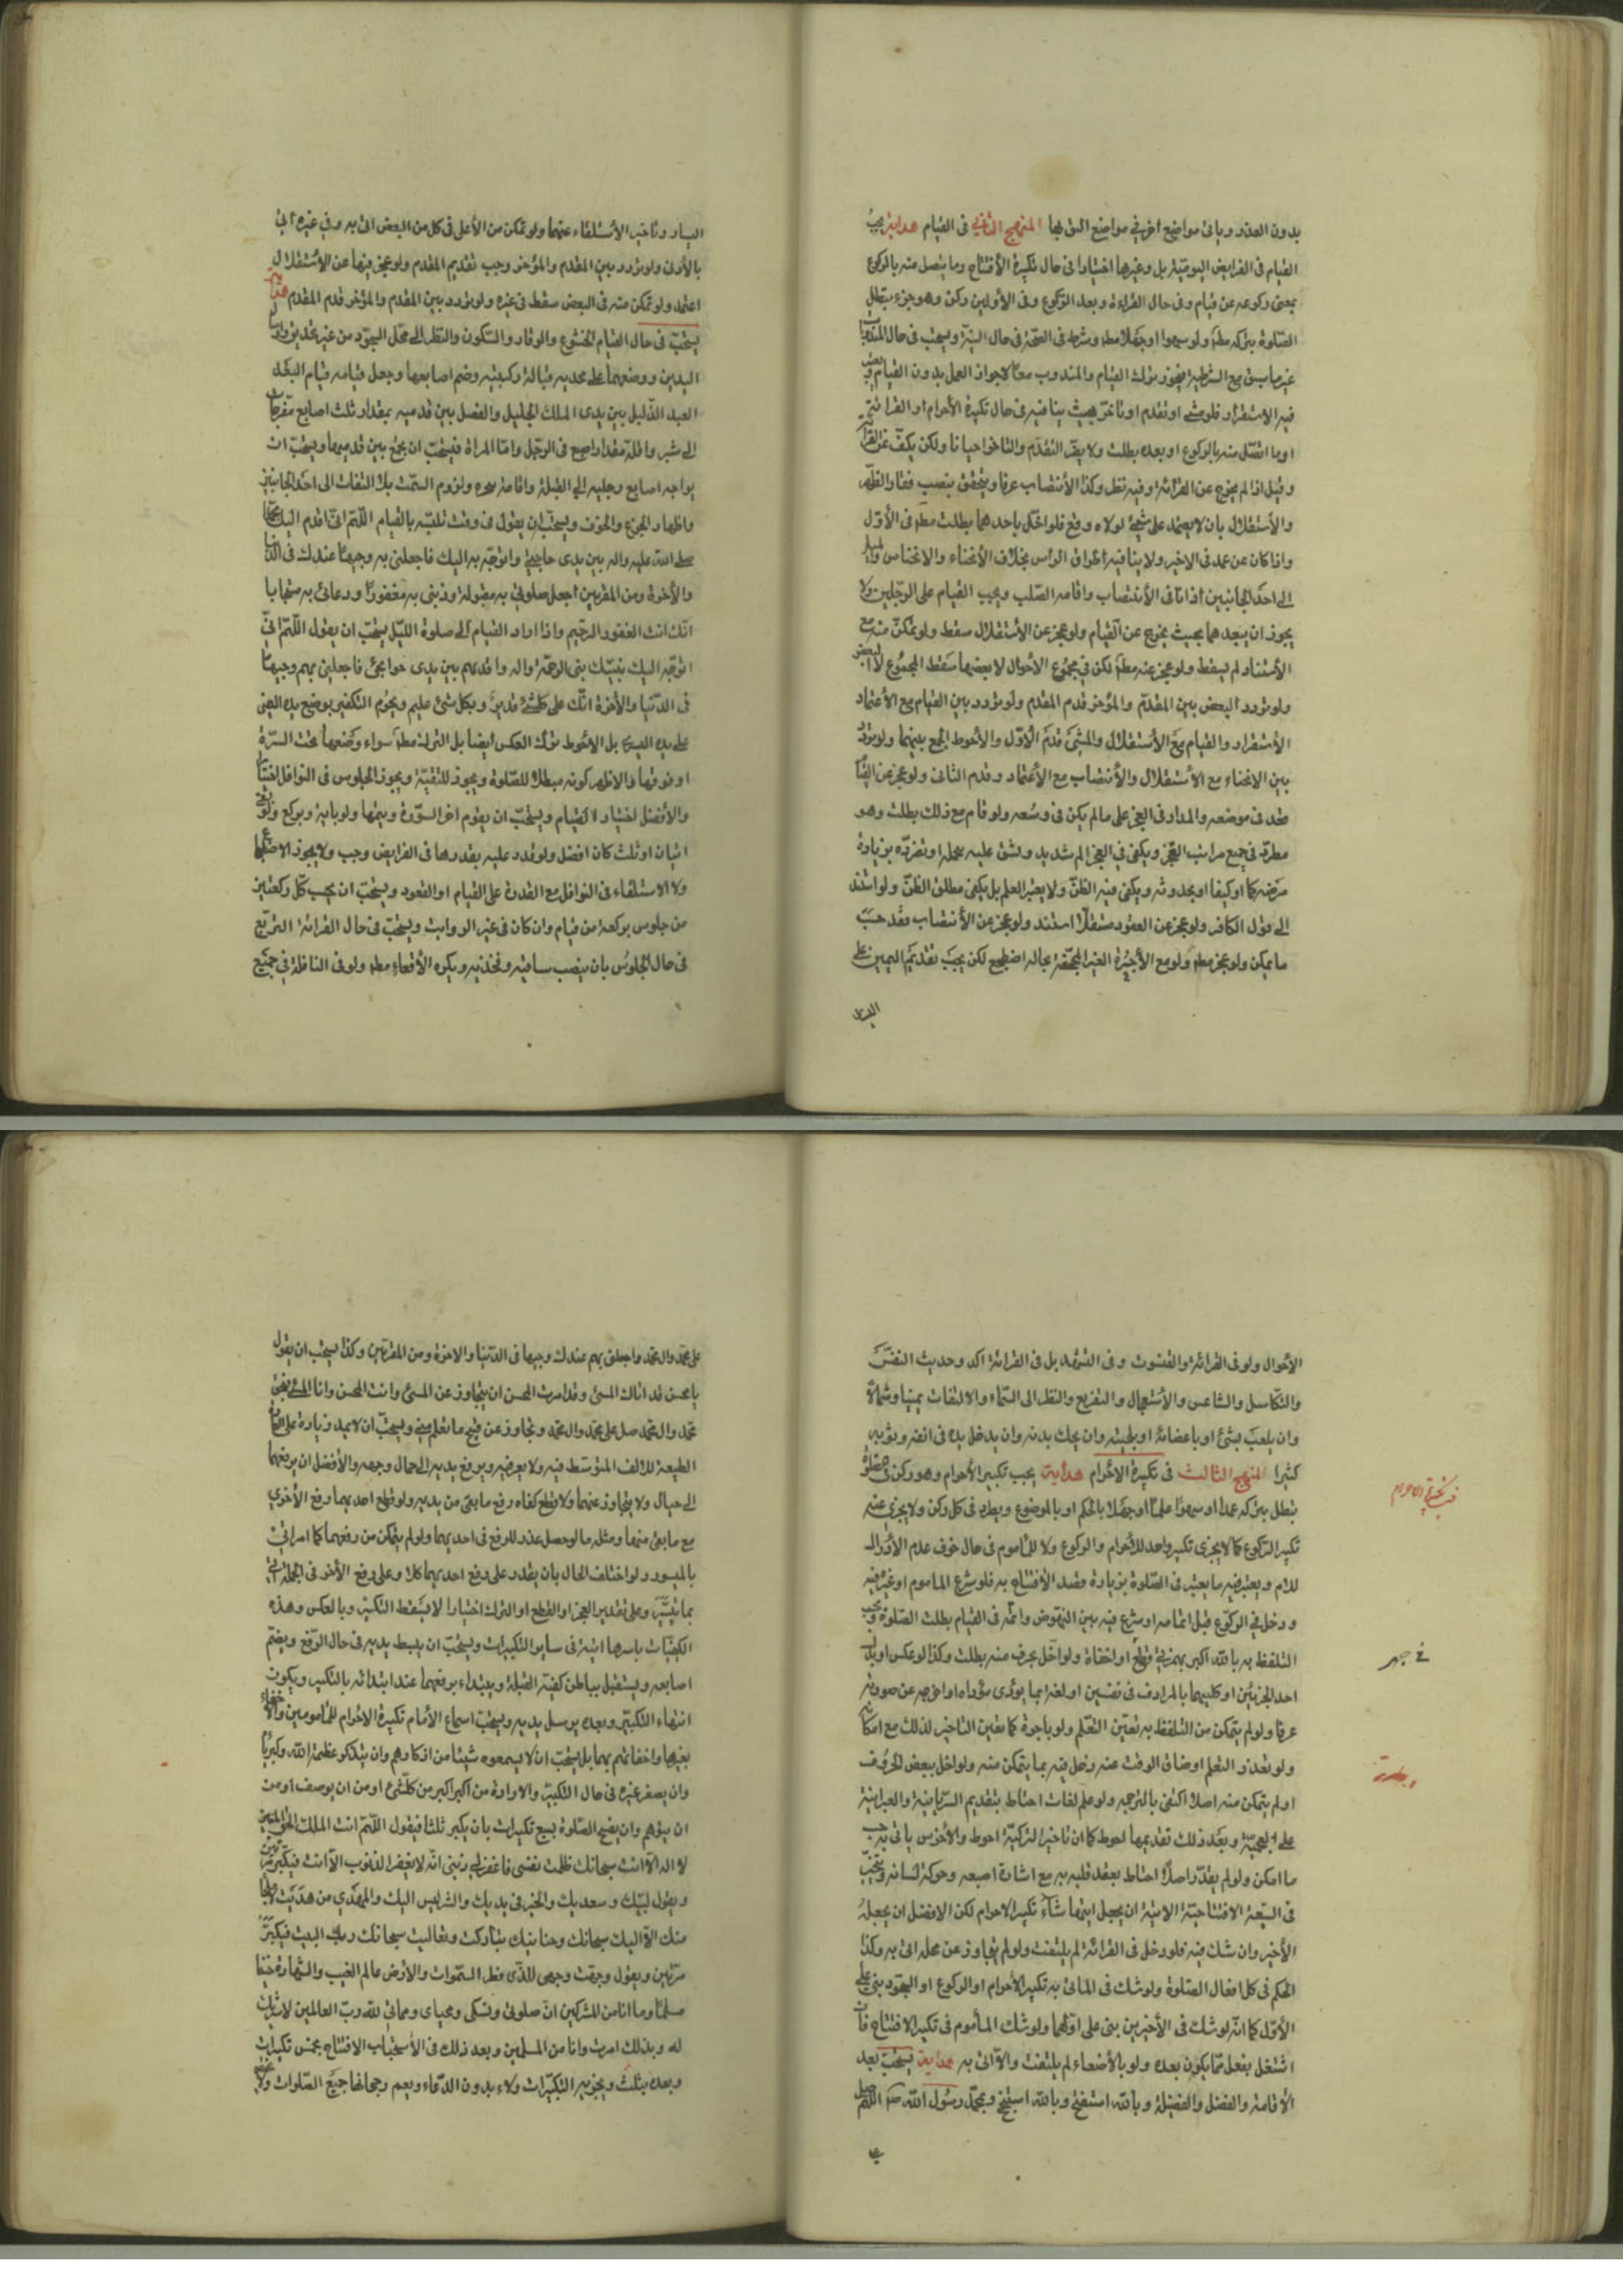 بدون العذر وياتى مواضع اخر فى مواضع اليق بها المنهج الثانى فى القيام هداية يجب
القيام فى الفرايض اليومية بل وغيرها اختيارا فى حال تكبيرة الأفتتاح وما يتصل منه بالركوع
بمعنى ركوعه عن قيام وفى حال القراءة وبعد الركوع وفى الأولين ركن وهو جزء يبطل
الصلوة بتركه مطلقا ولو سهوا او جهلا مط وشرط فى الصحة فى حال النية ويستحب فى حال
غير ما سبق مع الشرطية فيجوز ترك القيام والمندوب معا لا جواز العمل بدون القيام
فيه الاستقرار فلو مشى او تقدم او تأخر بحيث ينافيه فى حال تكبيرة الأحرام او القرائة
او ما اتصل منه بالركوع او بعده بطلت ولا يضر التقدم والتاخر احيانا ولكن يكف عن القراءة
وقيل اذا لم يخرج عن القرائة وفيه نظر وكذا الأنتصاب عرفا ويتحقق بنصب فقار الظهر
والأستقلال بان لا يعتمد على شئ لولاه وقع فلو اخل باحدهما بطلت مطلقا فى الأول
واذا كان عن عمد فى الاخير ولا ينافيه اطراق الراس بخلاف الأنحناء والانخناس
الى احد الجانبين اذا نافى الأنتصاب واقامه الصلب ويجب القيام على الرجلين ولا
يجوز ان يبعدهما بحيث يخرج عن القيام ولو عجز عن الأستقلال سقط ولو تمكن منه مع
الأستناد لم يسقط ولو عجز عنه مطلقا لكن فى مجموع الأحوال لا بعضها سقط المجموع لا البعض
ولو تردد البعض بين المقدم والمؤخر قدم المقدم ولو تردد بين القيام مع الأعتماد
الأستقرار والقيام مع الأستقلال والمشى قدم الأول والأحوط الجمع بينهما ولو تردد
بين الانحناء مع الأستقلال والأنتصاب مع الأعتماد وقدم الثانى ولو عجز عن القيام
قعد فى موضعه والمدار فى العجز على ما لم يكن فى وسعه ولو قام مع ذلك بطلت وهو
مطرد فى جميع مراتب العجز ويكفى فى العجز الم شديد ويشق عليه تحمله او تضرره بزيادة
مرضه كما او كيفا او بحدوثه ويكفى فيه الظن ولا يعتبر العلم بل يكفى مطلق الظن ولو استند
الى قول الكافر ولو عجز عن القعود مستقلا استند ولو عجز عن الأنتصاب فقد حسب
ما يمكن ولو عجز مطلقا ولو مع الأجيرة الغير المجحفة بحاله اضطجع لكن يجب تقديم اليمين على
اليسار
اليسار وتاخير الأستلقاء عنهما ولو تمكن من الأعلى فى كل من البعض اتى به وفى غيره اتى
بالأدون ولو تردد بين المقدم والمؤخر وجب تقديم المقدم ولو عجز فيها عن الاستقلال
اعتمد ولو تمكن منه فى البعض سقط فى غيره ولو تردد بين المقدم والمؤخر قدم المقدم هداية
يستحب فى حال القيام الخشوع والوقار والسكون والنظر الى محل السجود من غير تحديق
اليدين ووضعهما على فخذيه قبالة ركبتيه وضم اصابعها وجعل قيامه قيام
العبد الذليل بين يدى الملك الجليل والفصل بين قدميه بمقدار ثلث اصابع مفرجات
الى شبر واقله مقدار اصبع فى الرجل واما المراة فيستحب ان تجمع بين قدميها ويستحب ان
يواجه اصابع رجليه الى القبلة واقامة نحره ولزوم السمت بلا التفات الى احد الجانبين
واظهار الجزع والخوف ويستحب ان يقول فى وقت تلبسه بالقيام اللهم انى اقدم اليك محمدا
صلى الله عليه واله بين يدى حاجتى واتوجه به اليك فاجعلنى به وجيها عندك فى الدنيا
والأخرة ومن المقربين اجعل صلوتى به مقبولة وذنبى به مغفورا ودعائى به مستجابا
انك انت الغفور الرحيم واذا اراد القيام الى صلوة الليل يستحب ان يقول اللهم انى
اتوجه اليك بنبيك نبى الرحمة واله واقدمهم بين يدى حوايجى فاجعلنى بهم وجيها
فى الدنيا والأخرة انك على كلشئ قدير وبكل شئ عليم ويحرم التكفير بوضع يده اليمنى
على يده اليسرى بل الاحوط ترك العكس ايضا بل الترك مطلقا سواء وضعها تحت السرة
او فوقها والاظهر كونه مبطلا للصلوة ويجوز للتقية ويجوز الجلوس فى النوافل اختيارا
والأفضل اختيار القيام ويستحب ان يقوم اخر السورة ويتمها ولو باية ويركع
اثيان اوثلث كان افضل ولو قدر عليه بقدرها فى الفرايض وجب ولا يجوز الاضطجاع
ولا الاستلقاء فى النوافل مع القدرة على القيام او القعود ويستحب ان يحسب كل ركعتين
من جلوس بركعة من قيام وان كان فى غير الرواتب ويستحب فى حال القرائة التربع
فى حال الجلوس بان ينصب ساقيه وفخذيه ويكره الأقعاء مطلقا ولو فى النافلة فى جميع
الأحوال ولو فى القرائة والقنوت وفى التشهد بل فى القرائة اكد وحديث النفس
والتكاسل والتناعس والأستعجال والتفريج والنظر الى السماء والالتفات يمينا وشمالا
وان يلعب بشئ او باعضائه او بلحيته وان يحك بدنه وان يدخل يده فى انفه وثوبه
كثيرا المنهج الثالث فى تكبيرة الاحرام هداية يجب تكبير الأحرام وهو ركن فى الصلوة
تبطل بتركه عمدا او سهوا علما او جهلا بالحكم او بالموضوع وبعده فى كل ركن ولا يجزى عنه
تكبير الركوع كما لا يجزى تكبير واحد للاحرام والركوع ولا للماموم فى حال خوف عدم الأدراك
للامام ويعتبر فيه ما يعتبر فى الصلوة بزيادة قصد الأفتتاح به فلو شرع الماموم او غيره فيه
ودخل فى الركوع قبل اتمامه او شرع فيه بين النهوض واتمه فى القيام بطلت الصلوة ويجب
التلفظ به بالله اكبر بهمزتى قطع او اخفاء ولو اخل بحرف منه بطلت وكذا لو عكس او بدل
احد الجزئين او كليهما بالمرادف فى نفسين او لغة بما يؤدى مؤداه او اخرجه عن صورته
عرفا ولو لم يتمكن من التلفظ به تعين التعلم ولو باجرة كما تعين التاخير لذلك مع امكانه
ولو تعذر التعلم او ضاق الوقت عنه دخل فيه بما يتمكن منه ولو اخل ببعض الحروف
او لم يتمكن منه اصلا اكتفى بالترجمة ولو علم لغات احتاط بتقديم السريانية والعبرانية
على العجمية وبعد ذلك تقديمها احوط كما ان تاخير التركية احوط والأخرس ياتى به حسب
ما امكن ولو لم يقدر اصلا احتاط بعقد قلبه به مع اشارة اصبعه وحركة لسانه ويتخير
فى السبعة الافتتاحية الاتية ان يجعل ايتها شاء تكبير الاحرام لكن الافضل ان يجعله
الأخير وان شك فيه فلو دخل فى القرائة لم يلتفت ولو لم يتجاوز عن محله اتى به وكذا
الحكم فى كل افعال الصلوة ولو شك فى الماتى به تكبير الأحرام او الركوع او السجود بنى على
الأول كما انه لو شك فى الأخيرين بنى على اولهما ولو شك المأموم فى تكبير الافتتاح فان
اشتغل بفعل مما يكون بعده ولو بالأصغاء لم يلتفت والا اتى به هداية يستحب بعد
الأقامة والفصل والفضيلة وبالله استفتح وبالله استنجح وبمحمد رسول الله ص اللهم صل
فى تكبيرة الاحرام
على محمد وال محمد واجعلنى بهم عندك وجيها فى الدنيا والاخرة ومن المقربين وكذا يستحب ان يقول
يا محسن قد اتاك المسئ وقد امرت المحسن ان يتجاوز عن المسئ وانت المحسن وانا المسئ فبحق
محمد وال محمد صل على محمد وال محمد وتجاوز عن قبيح ما تعلم منى ويستحب ان لا يمد زيادة على
الطبيعة للالف المتوسط فيه ولا يعرضه ويرفع يديه الى حيال وجهه والأفضل ان يرفعهما
الى حيال ولا يتجاوز عنهما ولا قطع كفاه رفع ما بقى من يديه ولو قطع احديهما رفع الأخرى
مع ما بقى منهما ومثله ما لو حصل عذر للرفع فى احديهما ولو لم يتمكن من رفعهما كما امر اتى
بالميسور ولو اختلف الحال بان يقدر على رفع احديهما كلا وعلى رفع الأخر فى الجملة اتى
بما تيسر وعلى تقدير العجز او القطع او الترك اختيارا لا يسقط التكبير وبالعكس وهذه
الكيفيات باسرها اتية فى ساير التكبيرات ويستحب ان يبسط يديه فى حال الرفع ويضم
اصابعه ويستقبل بباطن كفيه القبلة ويبتداء برفعهما عند ابتدائه بالتكبير ويكون
انتهاء التكبير وبعده يرسل يديه ويستحب اسماع الأمام تكبيرة الاحرام للمأمومين
بغيرها واخفائهم بها بل يستحب ان لا يسمعوه شيئا من اذكارهم وان يتذكر عظمة الله وكبريائه
وان يصغر غيره فى حال التكبير والا رادة من اكبر اكبر من كلشئ او من ان يوصف او من
ان يتوهم وان يفتتح الصلوة بسبع تكبيرات بان يكبر ثلثا فيقول اللهم انت الملك الحق المبين
لا اله الا انت سبحانك ظلمت نفسى فاغفر لى ذنبى انه لا يغفر الذنوب الا انت فيكبر مرتين
ويقول لبيك وسعديك والخير فى يديك والشر ليس اليك والمهدى من هديت لا ملجأ
منك الا اليك سبحانك وحنانيك تباركت وتعاليت سبحانك رب البيت فيكبر
مرتين ويقول وجهت وجهى للذى فطر السموات والأرض عالم الغيب والشهادة حنيفا
مسلما وما انا من المشركين ان صلوتى ونسكى ومحياى ومماتى لله رب العالمين لا شريك
له وبذلك امرت وانا من المسلمين وبعد ذلك فى الأستحباب الافتتاح بخمس تكبيرات
وبعده بثلث ويجزيه التكبيرات ولاء بدون الدعاء ويعم رجحانها جميع الصلوات